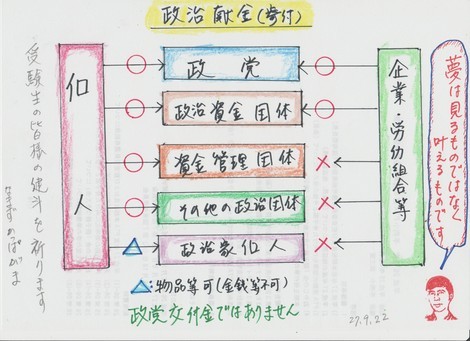 政治献金(寄付)
受験生の皆様の健斗を祈ります
個人
政党
政治資金団体
資金管理団体
その他の政治団体
政治家個人
企業・労働組合等
夢は見るものではなく
叶えるものです
△:物品等可(金銭等不可)
政党交付金ではありません
27.9.22